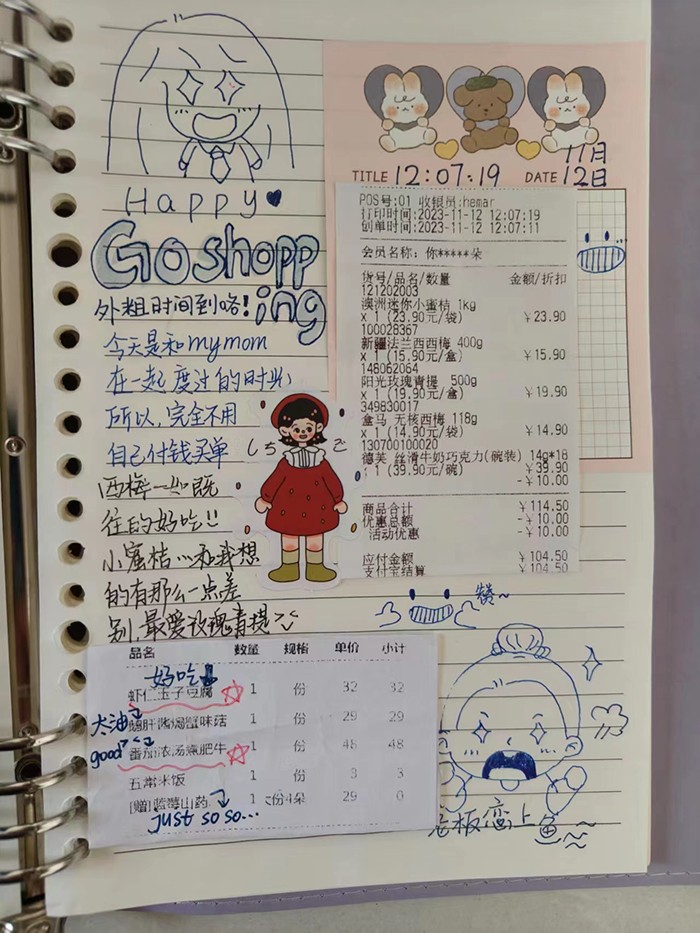 Happy
Go shopp
ing
外粗时间到咯!
今天是和my mom
在一起度过的时光
所以,完全不用
自己付钱买单
西梅一如既
往的好吃!!
小蜜桔…和我想
的有那么一点差
别,最爱玫瑰青提
しちご
11月
TITLE 12:07:19 DATE 12日
POS号:01 收银员:hemar
打印时间:2023-11-12 12:07:19
创单时间:2023-11-12 12:07:11
会员名称: 你*****朵
货号/品名/数量 金额/折扣
121202003
澳洲迷你小蜜桔 1kg
x 1 (23.90元/袋) ¥23.90
100028367
新疆法兰西西梅 400g
x 1 (15.90元/盒) ¥15.90
148062064
阳光玫瑰青提 500g
x 1 (19.90元/盒) ¥19.90
349830017
盒马 无核西梅 118g
x 1 (14.90元/袋) ¥14.90
130700100020
德芙 丝滑牛奶巧克力(碗装) 14g*18
1 (39.90元/碗) ¥39.90
-¥10.00
商品合计 ¥114.50
优惠总额 -¥10.00
活动优惠 -¥10.00
应付金额 ¥104.50
支付宝结算 ¥104.50
赞~
品名 数量 规格 单价 小计
好吃
虾仁玉子豆腐 1 份 32 32
太油
鹅肝酱焗蟹味菇 1 份 29 29
good
番茄浓汤煮肥牛 1 份 48 48
五常米饭 1 份 3 3
[赠]蓝莓山药 1 份4朵 29 0
just so so...
老板恋上鱼